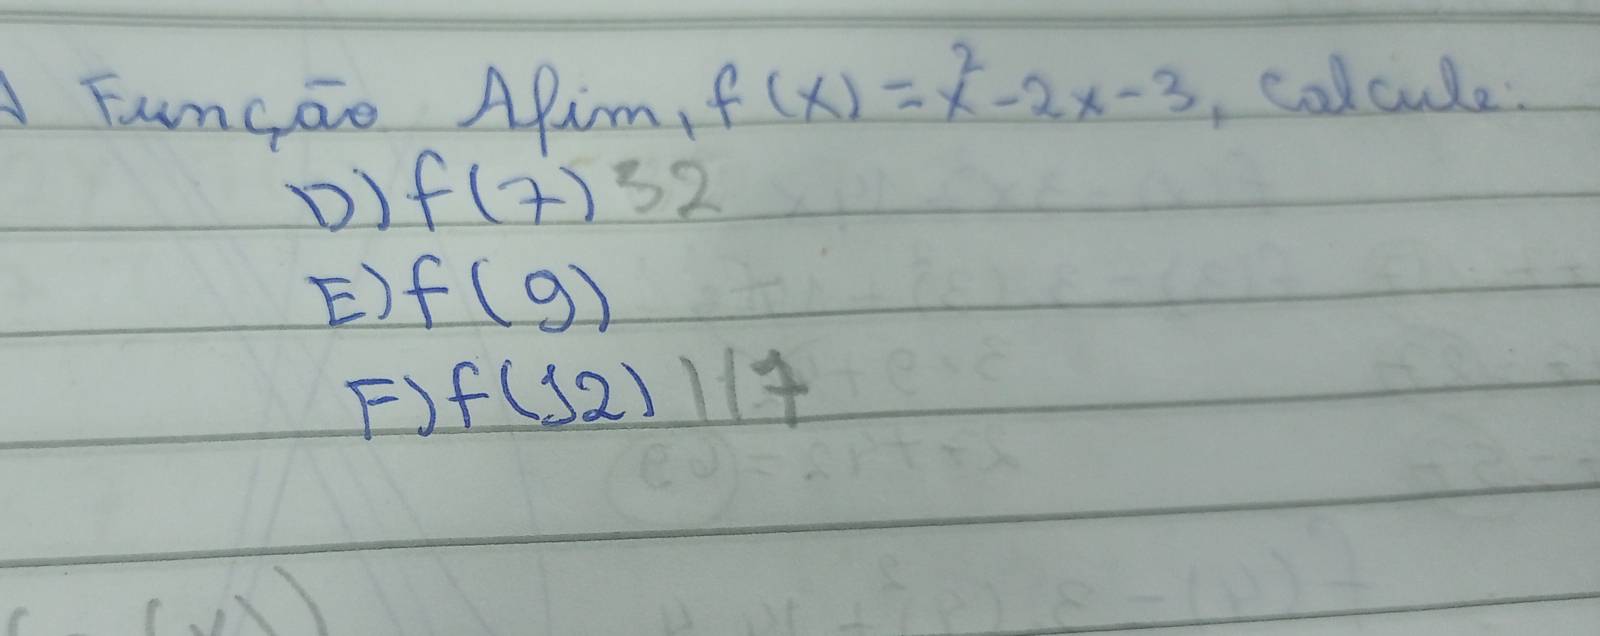 Função Afim, f(x) = x² - 2x - 3, calcule:
D) f(7) 32
E) f(9)
F) f(12) 117